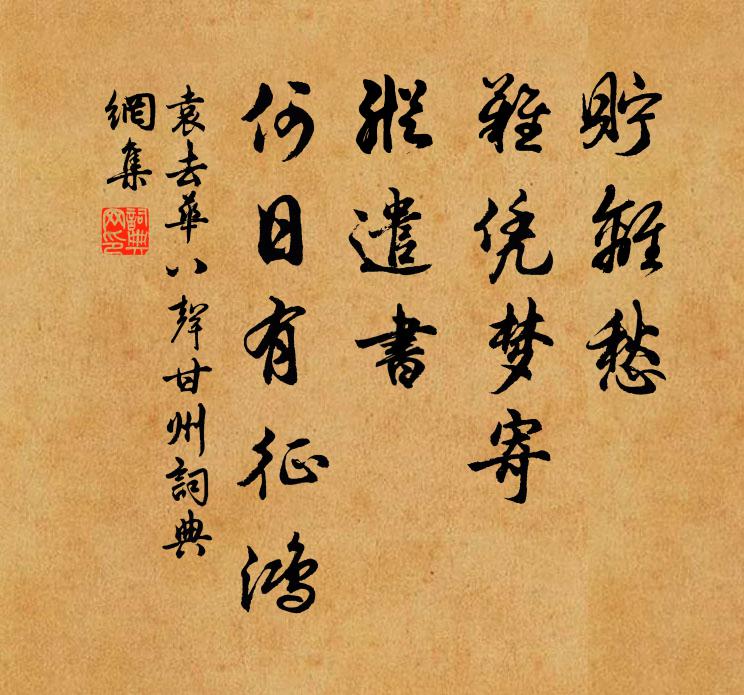 貯離愁
難凭梦寄
縱遣書
何日有征鴻
袁去華八聲甘州詞典
網集
詞典
网印